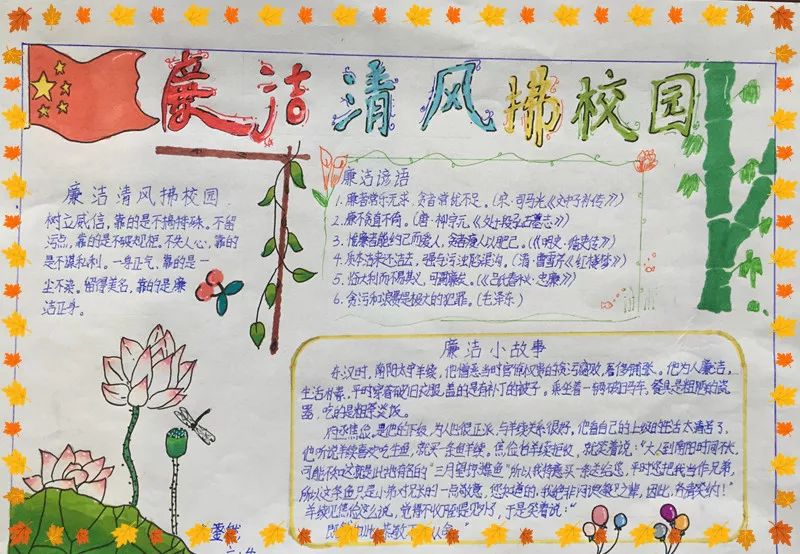 廉洁清风拂校园
廉洁清风拂校园
树立威信，靠的是不搞特殊。不留
污点，靠的是不破规矩。不失人心，靠的
是不谋私利。一身正气，靠的是一
尘不染。留得美名，靠的是廉
洁正身。
廉洁谚语
1.廉者常乐无求，贪者常忧不足。（宋·司马光《文中子补传》）
2.廉不贪直不倚。（唐·
3.惟廉者能约己而爱人，贪者瘦人以肥己。（《明史·
4.质本洁来还洁去，强于污淖陷渠沟。（清·曹雪芹《红楼梦》）
5.临大利而不易其义，可谓廉矣。（《吕氏春秋·忠廉》）
6.贪污和浪费是极大的犯罪。（毛泽东）
廉洁小故事
东汉时，南阳太守羊续，他憎恶当时官僚权贵的贪污腐败，奢侈铺张。他为人廉洁，
生活朴素。平时穿着破旧衣服，盖的是有补丁的被子。乘坐着一辆破旧马车。餐具是粗陋的瓷
器，吃的是粗茶淡饭。
府丞焦俭是他的下级，为人也很正派，与羊续关系很好，他看自己的上级的生活太清苦了，
他听说羊续喜欢吃生鱼，就买一条鱼羊续。焦俭怕羊续拒收，就笑着说：“大人到南阳时间不长，
可能不知这就是此地有名的“三月望饷鲤鱼”所以我特意买一条送给您，平时您把我当作兄弟，
所以这条鱼只是小弟对兄长的一点敬意，您知道的，我绝非阿谀奉承之辈，因此，务请笑纳！”
羊续见焦俭这么说，觉得不收下倒是见外了，于是笑着说：“
既然如此，恭敬不如从命。”